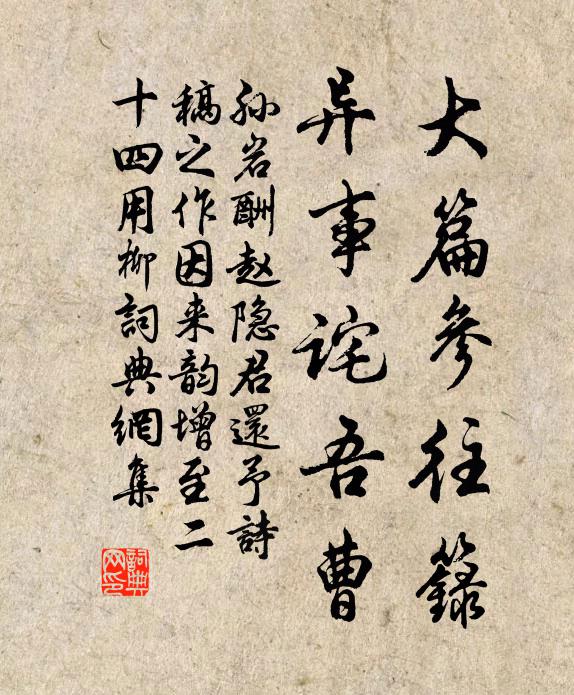 大篇参往籙
异事詫吾曹
孙岩酬赵隐君還予詩
稿之作因来韵增至二
十四用柳詞典網集
詞典网印